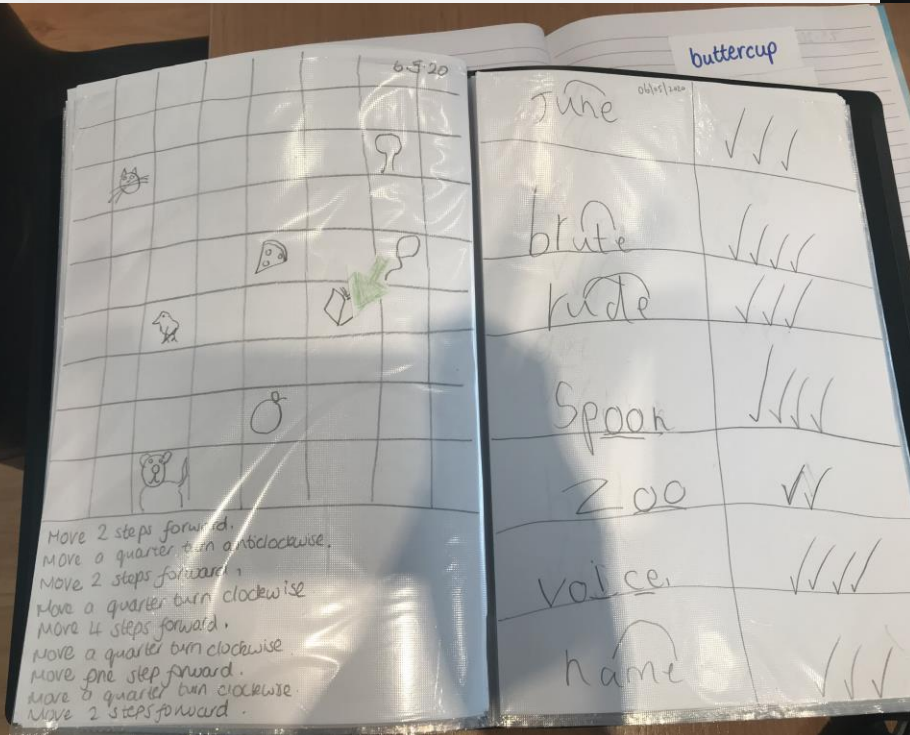 6.5.20
Move 2 steps forward.
Move a quarter turn anticlockwise.
Move 2 steps forward.
Move a quarter turn clockwise
Move 4 steps forward.
Move a quarter turn clockwise
Move one step forward.
Move a quarter turn clockwise.
Move 2 steps forward.
buttercup
06/05/2020
June
brute
rude
Spoon
Zoo
voice
name